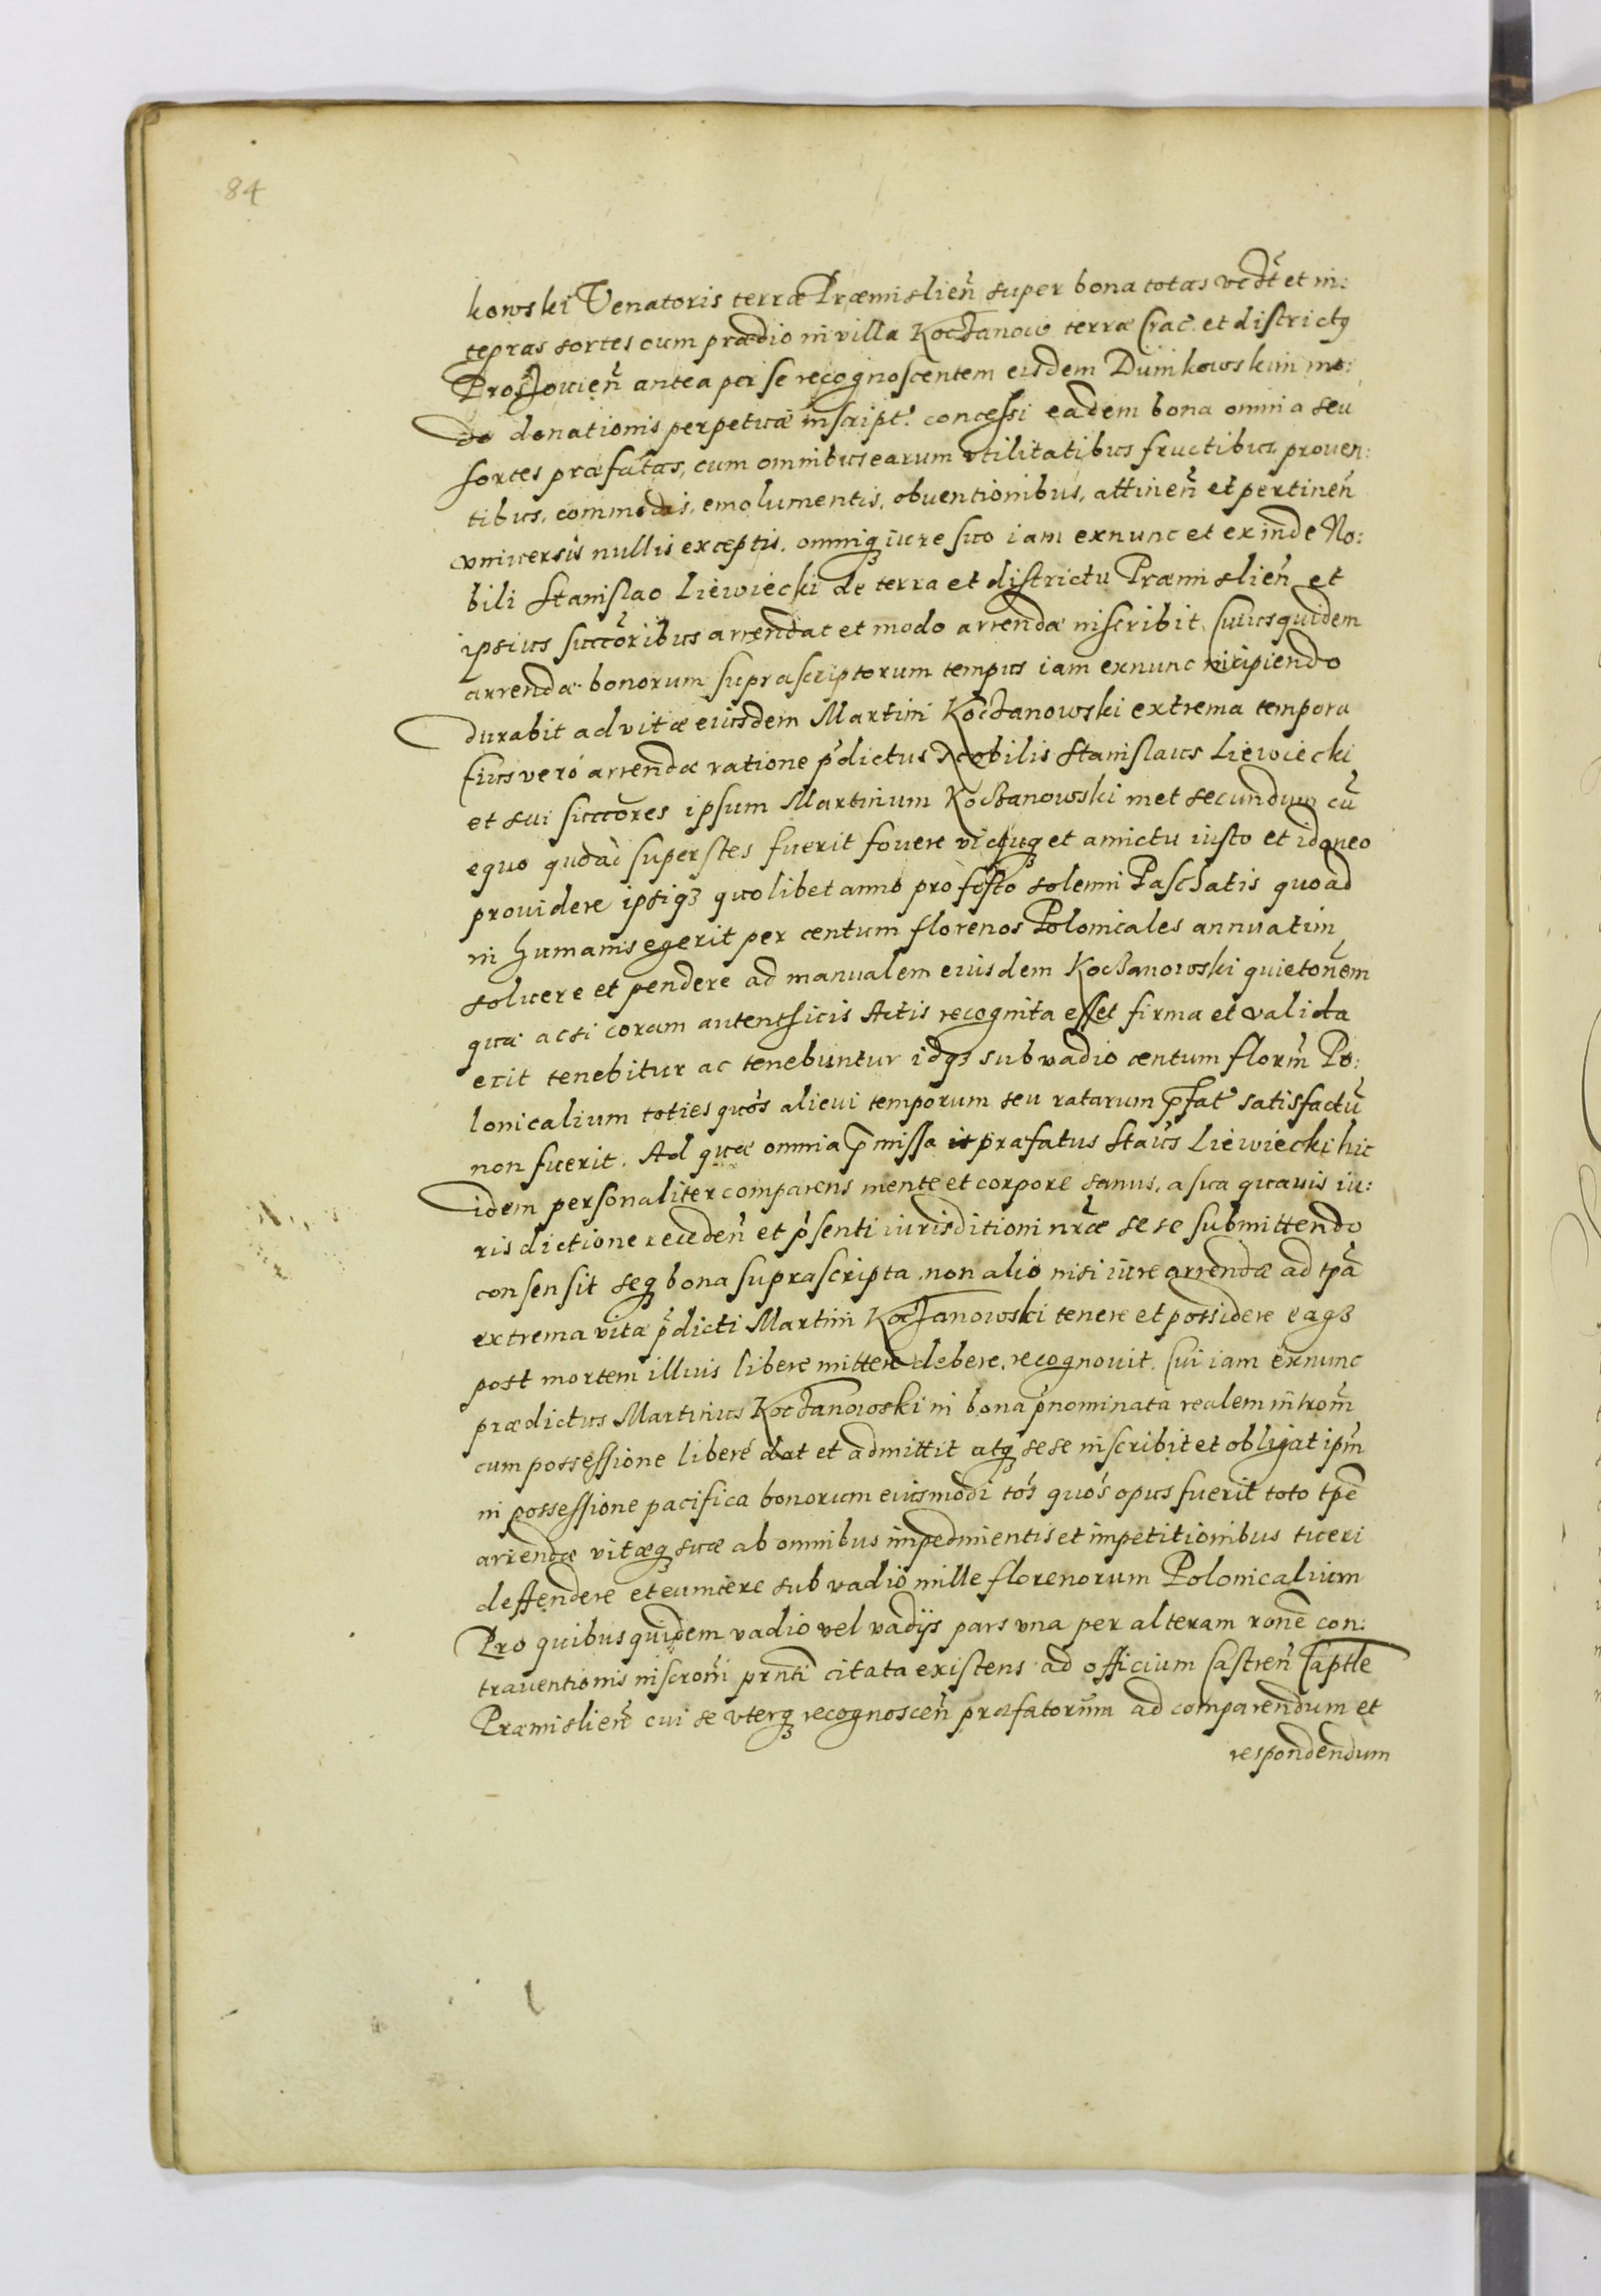 84
kowski Venatoris terræ Præmislien̄ super bona totas vcdt̄ et in:
tegras sortes cum prædio in villa Kochanow terræ Crac̄. et districtꝯ
Proszouien̄ antea per se recognoscentem eisdem Dunikowskim mo:
do donationis perpetuæ inscript. concessi eadem bona omnia seu
sortes præfatas, cum omnibus earum vtilitatibus fructibus, prouen:
tibus, commodis, emolumentis, obuentionibus, attinen̄ et pertinen̄
vniuersis nullis exceptis, omniqꝫ iure suo iam exnunc et exinde No:
bili Stanislao Liewiecki de terra et districtu Præmislien̄ et
ipsius succōribus arrendat et modo arrendæ inscribit, Cuiusquidem
arrendæ bonorum suprascriptorum tempus iam exnunc incipiendo
durabit ad vitæ eiusdem Martini Kochanowski extrema tempora
Cuius veró arrendæ ratione p̄dictus Nobilis Stanislaus Liewiecki
et sui succōres ipsum Martinum Kochanowski met secundum cū
equo quoad superstes fuerit fouere victuqꝫ et amictu iusto et idoneo
prouidere ipsiqꝫ quolibet anno pro festo solenni Paschatis quoad
in humanis egerit per centum florenos Polonicales annuatim
soluere et pendere ad manualem eiusdem Kochanowski quietōnem
quæ acsi coram autenthicis Actis recognita esset firma et valida
erit tenebitur ac tenebuntur idqꝫ sub vadio centum florm̄ Po:
lonicalium toties quōs alicui temporum seu ratarum p̄fat satisfactū
non fuerit. Ad quæ omnia p̄missa præfatus Staūs Liewiecki hic
idem personaliter comparens mente et corpore sanus, a sua quauis iu:
risdictione receden̄ et p̄senti iurisditioni nr̄æ se se submittendo
consensit seqꝫ bona suprascripta non alio nisi iure arrendæ ad tp̄a
extrema vitæ p̄dicti Martini Kochanowski tenere et possidere eaqꝫ
post mortem illius libere mittere debere, recognouit. Cui iam exnunc
prædictus Martinus Kochanowski in bona p̄nominata realem intrōm̄
cum possessione liberé dat et admittit atqꝫ sese inscribit et obligat ipm̄
in possessione pacifica bonorum eiusmodi tōs quōs opus fuerit toto tp̄e
arrendæ vitæqꝫ suæ ab omnibus impedimentis et impetitionibus tueri
deffendere et euincere sub vadio mille florenorum Polonicalium
Pro quibus quidem vadio vel vadijs pars vna per alteram ronē con:
trauentionis inscronī prnti citata existens ad officium Castren̄ Captle
Præmislien̄ cui se vterqꝫ recognoscen̄ præfatorum ad comparendum et
respondendum